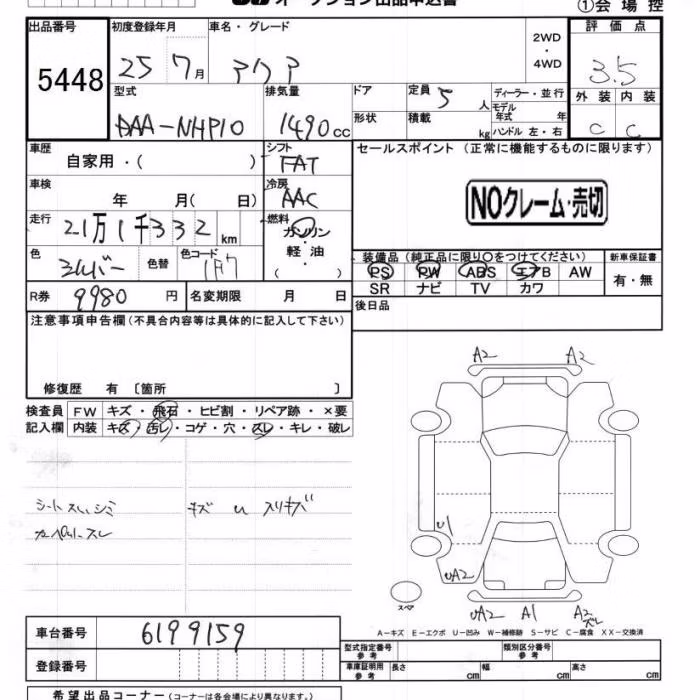 オークション出品申込書
①会場控
出品番号 初度登録年月 車名・グレード 2WD・4WD 評価点
5448 25 7月 アクア 3.5
型式 排気量 ドア 定員 5人 ディーラー・並行 外装 内装
DAA-NHP10 1490cc 形状 積載 kg モデル年式 年 C C
ハンドル 左・右
車歴 自家用・( ) シフト FAT セールスポイント(正常に機能するものに限ります)
車検 年 月( 日) 冷房 AAC
NOクレーム・売切
走行 21万1千332km 燃料 ガソリン・軽油( )
色 シルバー 色替 色コード 1F7
装備品(純正品に限り○をつけてください) 新車保証書
PS PW ABS エアB AW 有・無
SR ナビ TV カワ
R券 9980円 名変期限 月 日 後日品
注意事項申告欄(不具合内容等は具体的に記入して下さい)
修復歴 有〔箇所 〕
検査員 FW キズ・飛石・ヒビ割・リペア跡・×要
記入欄 内装 キズ・汚レ・コゲ・穴・スレ・キレ・破レ
A2 A2
シートスレ、シミ キズ U スリキズ
U1
UA2
スペア
UA2 A1 A2
スレ
A-キズ E-エクボ U-凹み W-補修跡 S-サビ C-腐食 XX-交換済
車台番号 6199159
型式指定番号 参考 類別区分番号 参考
登録番号 車庫証明用 参考 長さ cm 幅 cm 高さ cm
希望出品コーナー(コーナーは各会場により異なります。)